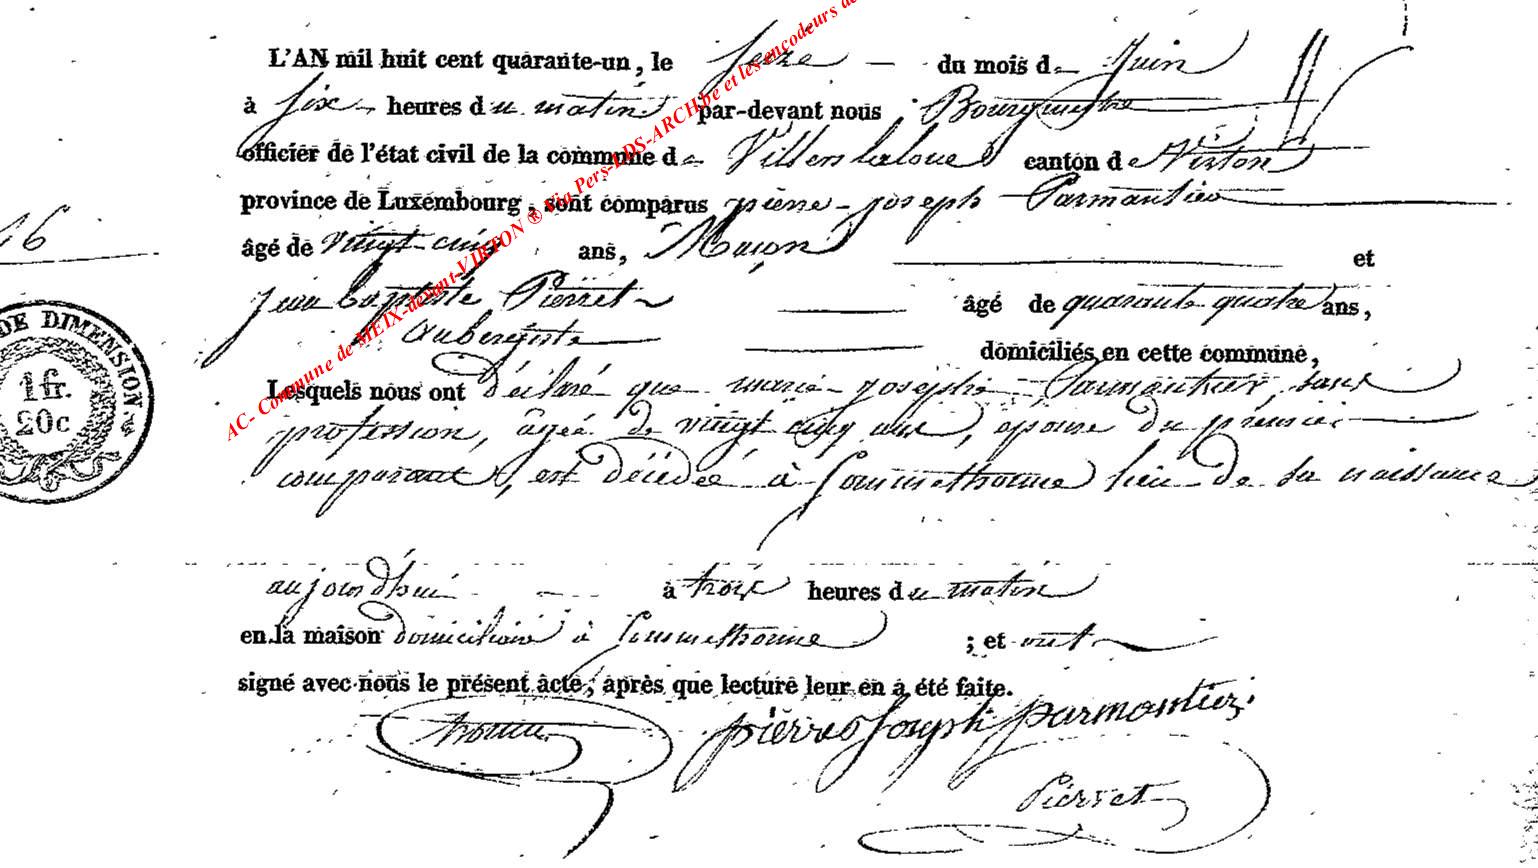 L'AN mil huit cent quarante-un, le seize du mois de Juin
à six heures du matin par-devant nous Bourgmestre
officier de l'état civil de la commune de Villers laloue canton de Virton
province de Luxembourg, sont comparus pierre-joseph Parmantier
16
âgé de vingt cinq ans, Maçon et
jean baptiste Pierret âgé de quarante quatre ans,
aubergiste domiciliés en cette commune,
Lesquels nous ont déclaré que marie josephe Parmantier, sans
profession, âgée de vingt cinq ans, épouse du prémier
comparant, est décédée à Sommethonne lieu de sa naissance
aujourd'hui à trois heures du matin
en la maison domiciliaire à Sommethonne ; et ont
signé avec nous le présent acte, après que lecture leur en a été faite.
pierre Joseph parmantier
Pierret
DE DIMENSION
1 fr.
20c
AC- Commune de MEIX-devant-VIRTON ® Via Pers-LDS-ARCH.be et les encodeurs de